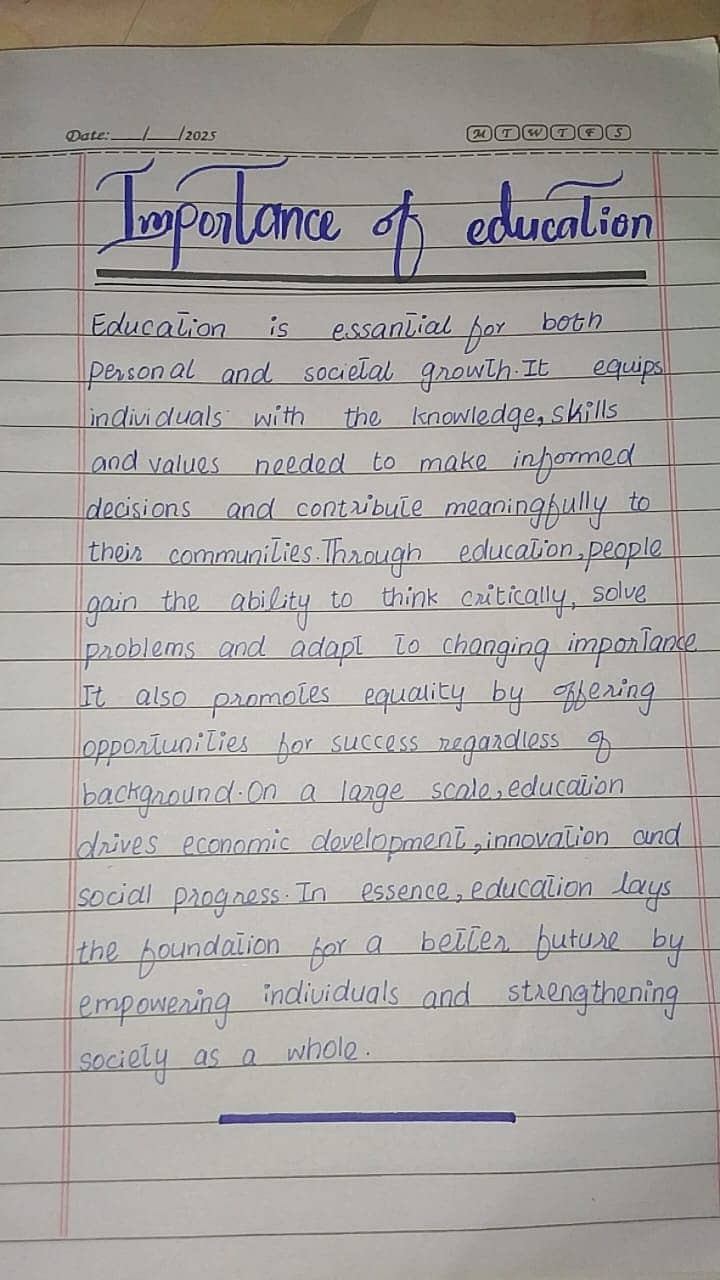 Date:__/__/2025 M T W T F S
Importance of education
Education is essantial for both
personal and societal growth. It equips
individuals with the knowledge, skills
and values needed to make informed
decisions and contribute meaningfully to
their communities. Through education, people
gain the ability to think critically, solve
problems and adapt to changing importance
It also promotes equality by offering
opportunities for success regardless of
background. On a large scale, education
drives economic development, innovation and
social progress. In essence, education lays
the foundation for a better future by
empowering individuals and strengthening
society as a whole.